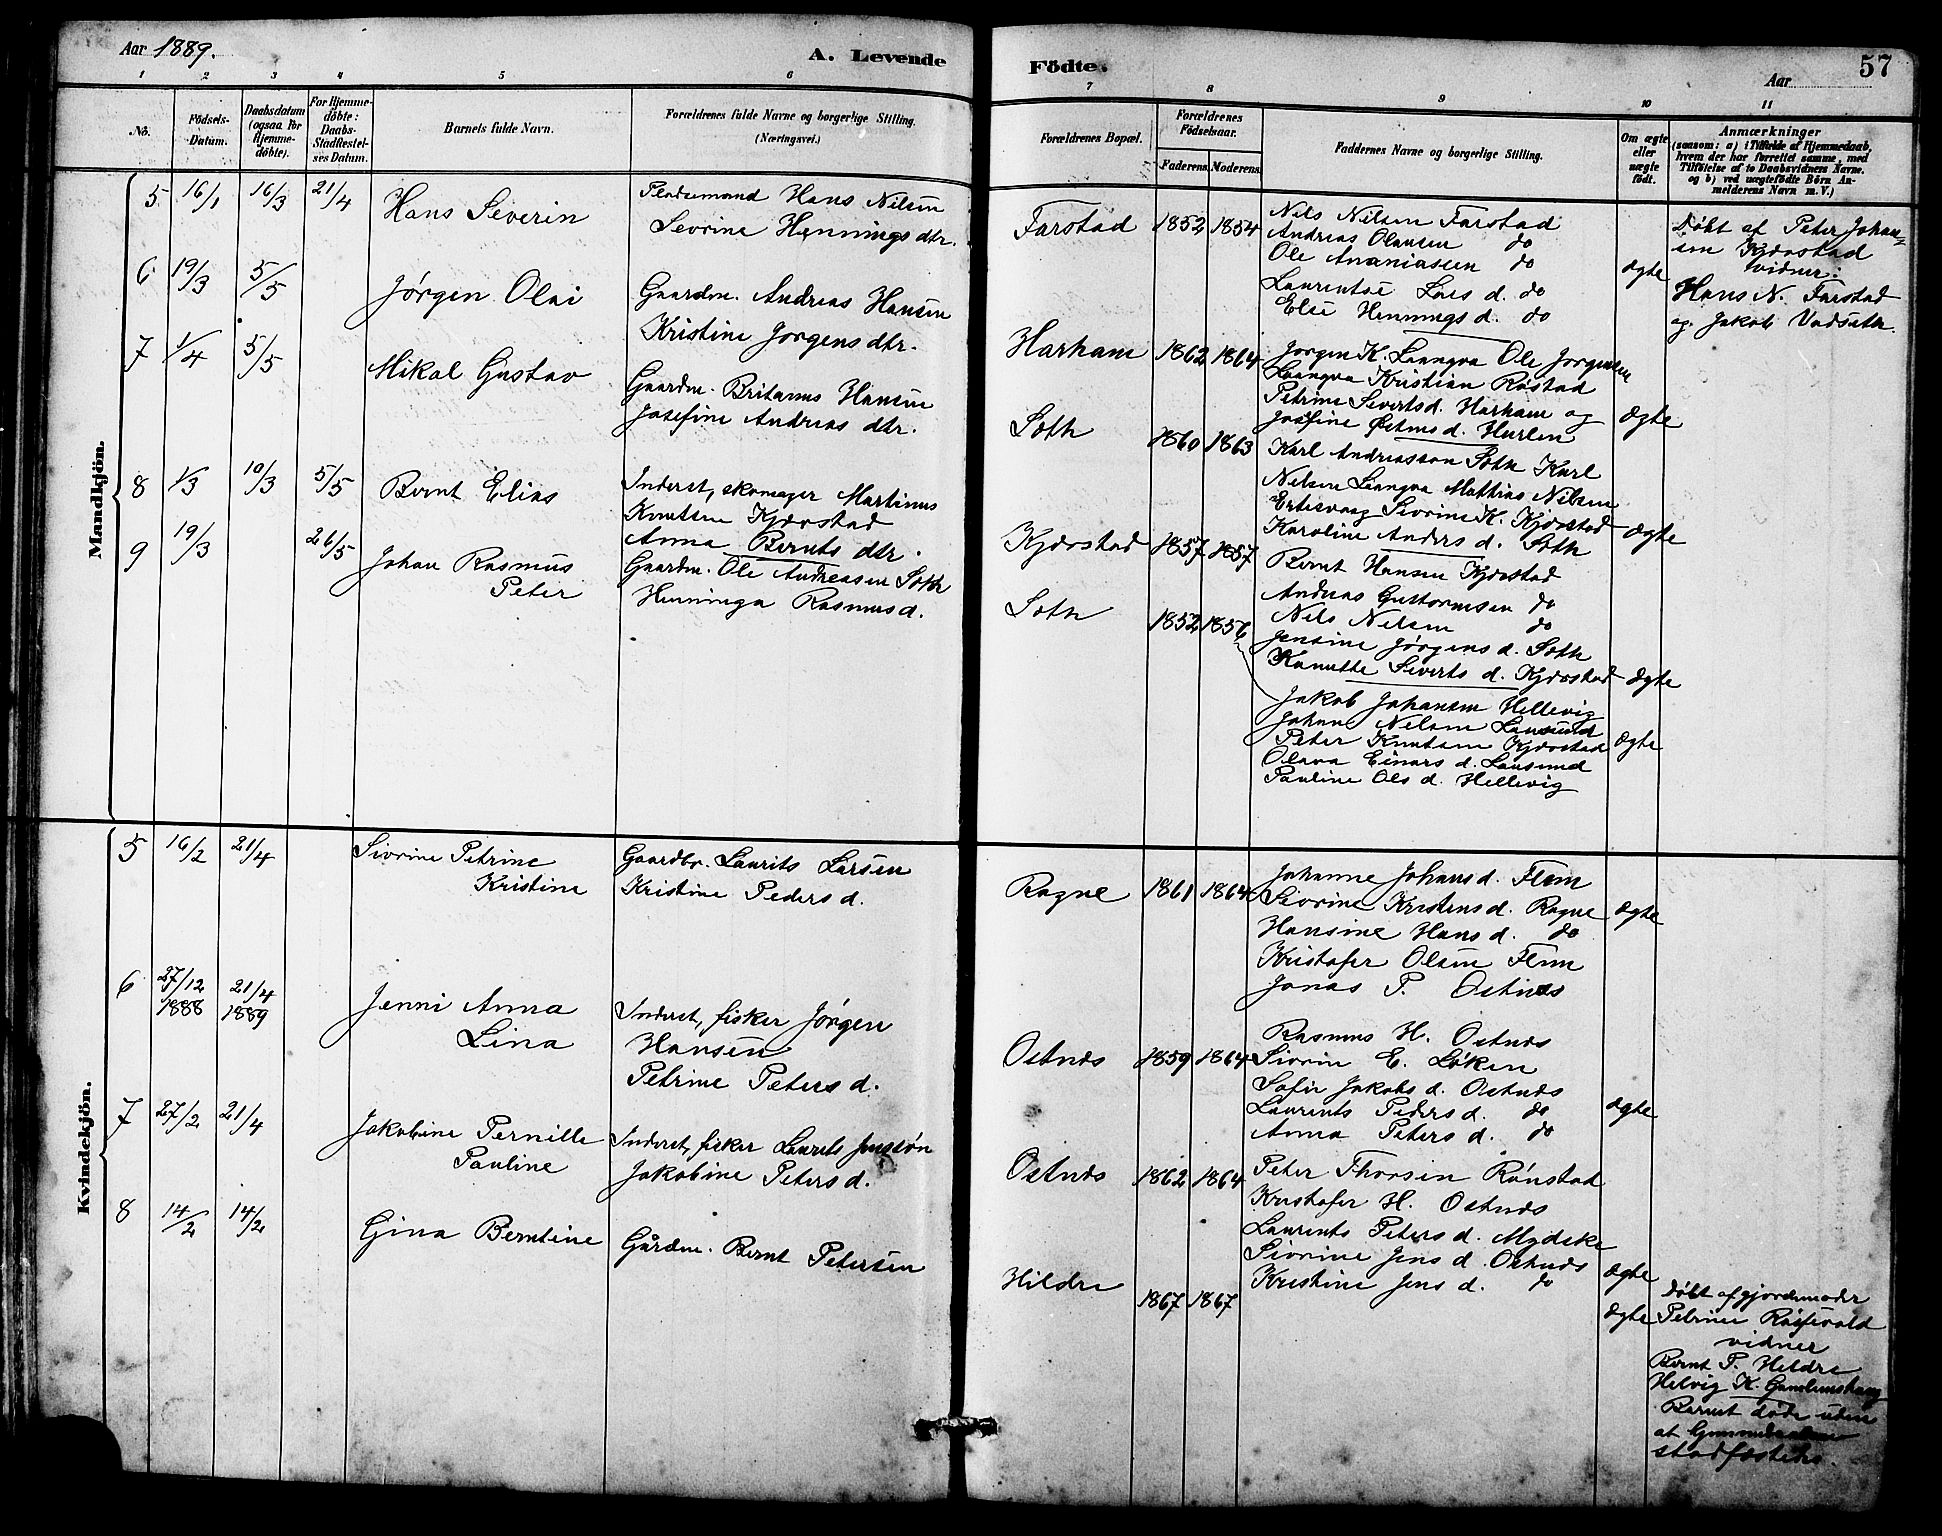 Aar 1889.
A. Levende
Födte.
Aar
57
1 2 3 4 5 6 7 8 9 10 11
No.
Födsels-
Datum.
Daabsdatum
(ogsaa for
Hjemme-
döbte).
For Hjemme-
döbte:
Daabs-
Stadfæstel-
ses Datum.
Barnets fulde Navn.
Forældrenes fulde Navne og borgerlige Stilling.
(Næringsvei.)
Forældrenes Bopæl.
Forældrenes
Födselsaar.
Faderens.
Moderens.
Faddernes Navne og borgerlige Stilling.
Om ægte
eller
uægte
födt.
Anmærkninger
(saasom: a) i Tilfælde af Hjemmedaab,
hvem der har forrettet samme, med
Tilföielse af to Daabsvidners Navne.
og b) ved uægtefödte Börn An-
melderens Navn m. V.)
Mandkjön.
5 16/1 16/3 21/4 Hans Severin
Hans Nilsen
Sevrine Hennings dtr.
Farstad 1852 1854
Nils Nilsen Farstad
Andreas Olausen do
Ole Ananiassen do
Laurentse Lars d. do
Else Hennings d. do
ægte
Døbt af Peter Johan-
sen Kjærstad
vidner:
Hans N. Farstad
og Jakob Vadseth.
6 19/3 5/5 Jørgen Olai
Gaardm. Andreas Hansen
Kristine Jorgens dtr.
Harham 1862 1864
Jorgen K. Laangva Ole Jorgensen
Laangva Kristian Røstad
Petrine Siverts d. Harham og
Josefine Østens d. Hurlen
ægte
7 1/4 5/5 Mikal Gustav
Gaardm. Britanus Hansen
Josefine Andreas dtr.
Soth 1860 1863
Karl Andreasson Soth Karl
Nilsen Laangva Mathias Nilsen
Ertesvaag Sivrine K. Kjærstad
Karoline Anders d. Soth
ægte
8 1/3 19/3 5/5 Bernt Elias
Inderst, skomager Martinus
Knutsen Kjærstad
Anna Bernts dtr.
Kjærstad 1857 1857
Bernt Hansen Kjærstad
Andreas Guttormsen do
Nils Nilsen do
Jensine Jørgens d. Soth
Knutte Siverts d. Kjærstad
ægte
9 19/3 26/5 Johan Rasmus
Peter
Gaardm. Ole Andreasen Soth
Henninga Rasmus d.
Soth 1852 1856
Jakob Johansen Hellevig
Johan Nilsen Lausund
Peter Knutsen Kjærstad
Olava Einars d. Lausund
Pauline Ols d. Hellevig
ægte
Kvindekjön.
5 16/2 21/4 Sivrine Petrine
Kristine
Gaardbr. Laurits Larsen
Kristine Peders d.
Rogne 1861 1864
Johanne Johans d. Flem
Sivrine Kristens d. Rogne
Hansine Hans d. do
Kristofer Olsen Flem
Jonas P. Ostnæs
ægte
6 27/12 1888 21/4 1889 Jenni Anna
Lina
Inderst, fisker Jørgen
Hansen
Petrine Peters d.
Ostnæs 1859 1864
Rasmus H. Ostnæs
Sivrin E. Løken
Sofie Jakobs d. Ostnæs
Laurents Peders d. do
Anna Peters d. do
ægte
7 27/2 21/4 Jakobine Pernille
Pauline
Inderst, fisker Laurits Jenssøn
Jakobine Peters d.
Ostnæs 1862 1864
Peter Thorsen Rønstad
Kristofer H. Ostnæs
Laurents Peters d. Mydske
Sivrine Jens d. Ostnæs
Kristine Jens d. do
ægte
8 14/2 14/2 Gina Berntine
Gårdm. Bernt Petersen
Hildre 1867 1867
ægte
Døbt af gjordemoder
Petrine
vidner
Bernt P. Hildre
Helvig K. Gamlemshaug
Barnet døde uden
at
stadfæstedes.